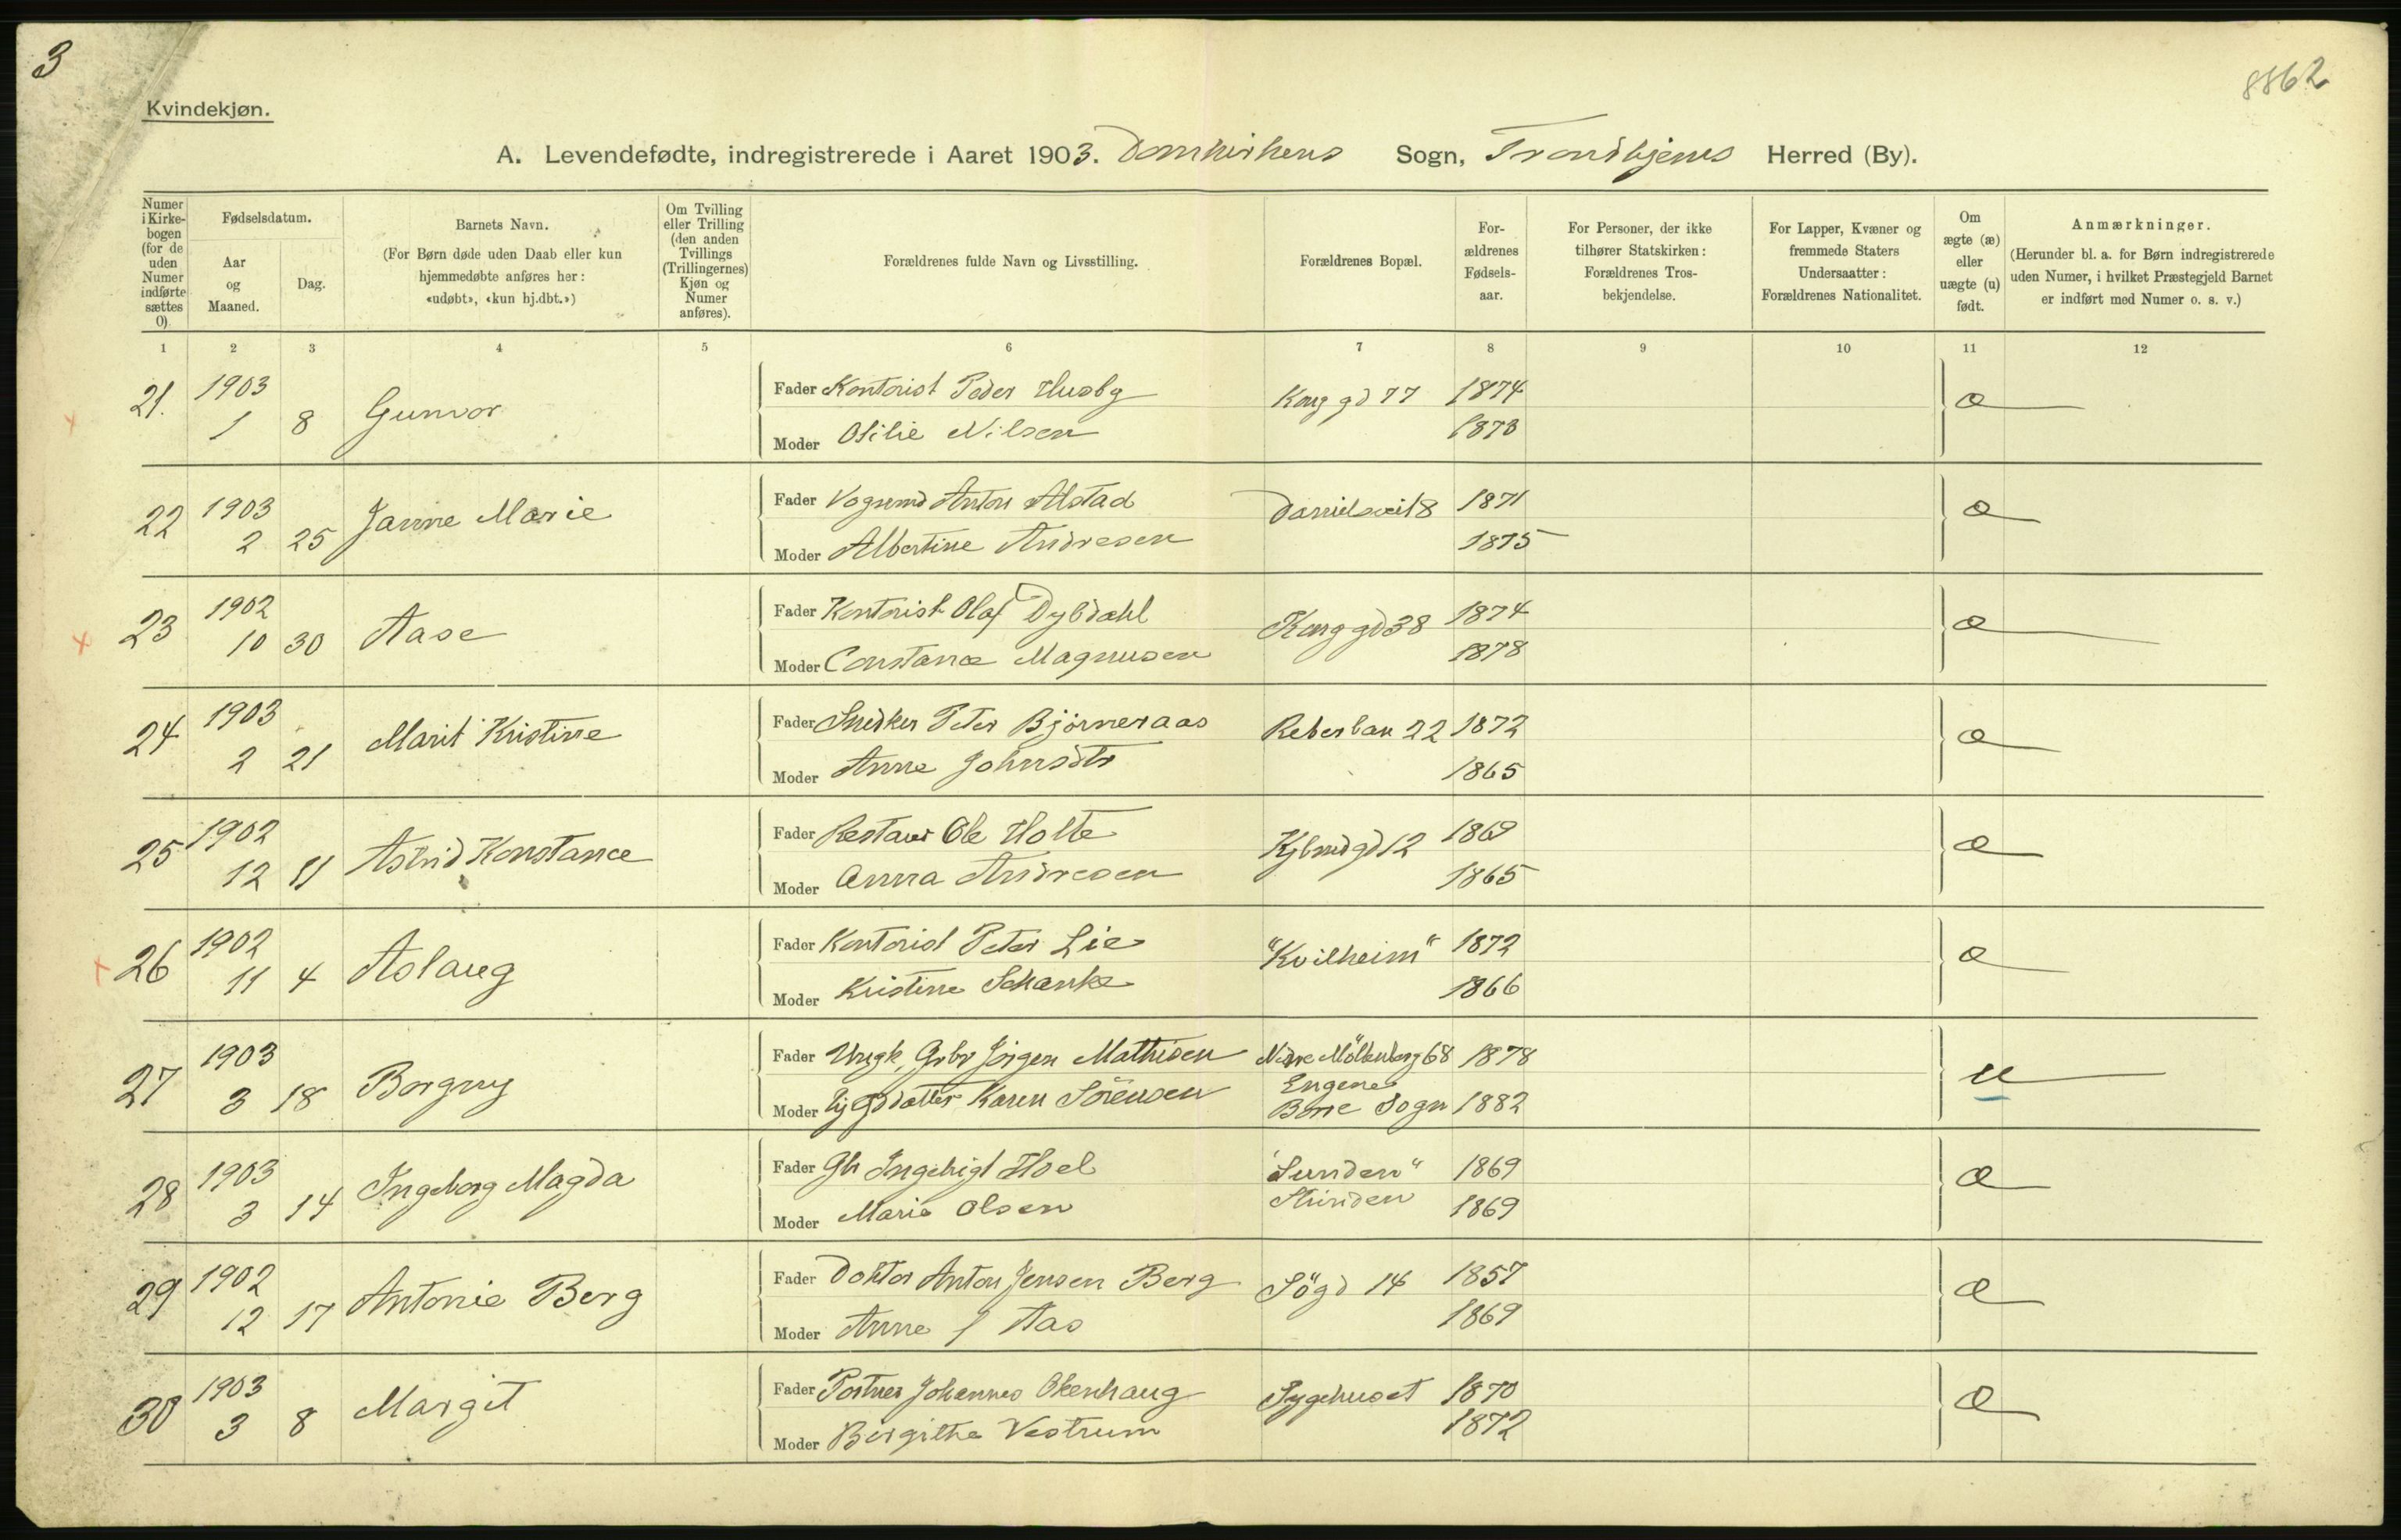 3
8862
Kvindekjøn.
A. Levendefødte, indregistrerede i Aaret 1903. Domkirkens Sogn, Trondhjems Herred (By).
Numer i Kirkebogen (for de uden Numer indførte sættes 0).
Fødselsdatum.
Aar og Maaned.
Dag.
Barnets Navn.
(For Børn døde uden Daab eller kun hjemmedøbte anføres her: «udøbt», «kun hj.dbt.»)
Om Tvilling eller Trilling (den anden Tvillings (Trillingernes) Kjøn og Numer anføres).
Forældrenes fulde Navn og Livsstilling.
Forældrenes Bopæl.
Forældrenes Fødselsaar.
For Personer, der ikke tilhører Statskirken: Forældrenes Trosbekjendelse.
For Lapper, Kvæner og fremmede Staters Undersaatter: Forældrenes Nationalitet.
Om ægte (æ) eller uægte (u) født.
Anmærkninger.
(Herunder bl. a. for Børn indregistrerede uden Numer, i hvilket Præstegjeld Barnet er indført med Numer o. s. v.)
1 2 3 4 5 6 7 8 9 10 11 12
21. 1903 1 8 Gunvor
Fader Kontorist Peder Husby Kong gd 77 1874 æ
Moder Otilie Nilsen 1873
22 1903 2 25 Janne Marie
Fader Vognmd Anton Alstad Danielsveit 8 1871 æ
Moder Albertine Andresen 1875
23 1902 10 30 Aase
Fader Kontorist Olaf Dybdahl Kong gd 38 1874 æ
Moder Constance Magnusen 1878
24 1903 2 21 Marit Kristine
Fader Snedker Peter Bjørneraas Reberban 22 1872 æ
Moder Anne Johnsdtr 1865
25 1902 12 11 Astrid Konstance
Fader Restaur Ole Holte Kjbmdgd 12 1869 æ
Moder Anna Andresen 1865
26 1902 11 4 Aslaug
Fader Kontorist Peter Lie "Kvilheim" 1872 æ
Moder Kristine Schanke 1866
27 1903 3 18 Borgny
Fader Ungk, Grbr Jørgen Mathisen Nedre Möllenberg 68 1878 u
Moder Karen Sörensen Engene Borre Sogn 1882
28 1903 3 14 Ingeborg Magda
Fader Gb Ingebrigt Hoel "Lunden" 1869 æ
Moder Marie Olsen Strinden 1869
29 1902 12 17 Antonie Berg
Fader Doktor Anton Jensen Berg Sögd 14 1857 æ
Moder Anne f Aas 1869
30 1903 3 8 Margit
Fader Portner Johannes Okenhaug Sygehuset 1870 æ
Moder Bergitha Vestrum 1872